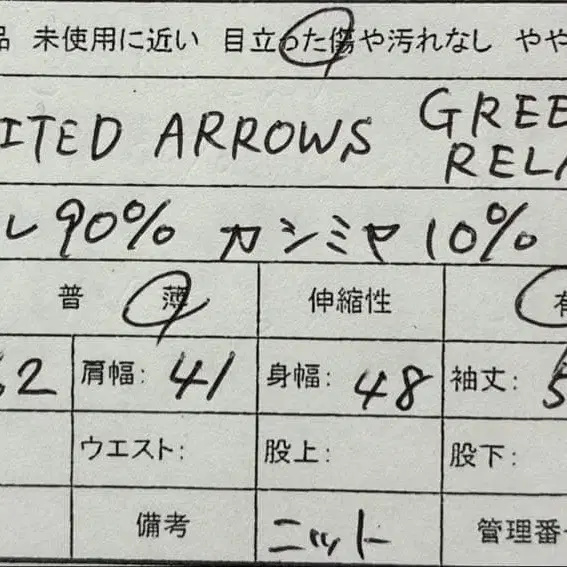 品 未使用に近い 目立った傷や汚れなし やや
ITED ARROWS GREE
RELA
ル 90% カシミヤ 10%
普 薄 伸縮性 有
62 肩幅: 41 身幅: 48 袖丈: 5
ウエスト: 股上: 股下:
備考 ニット 管理番